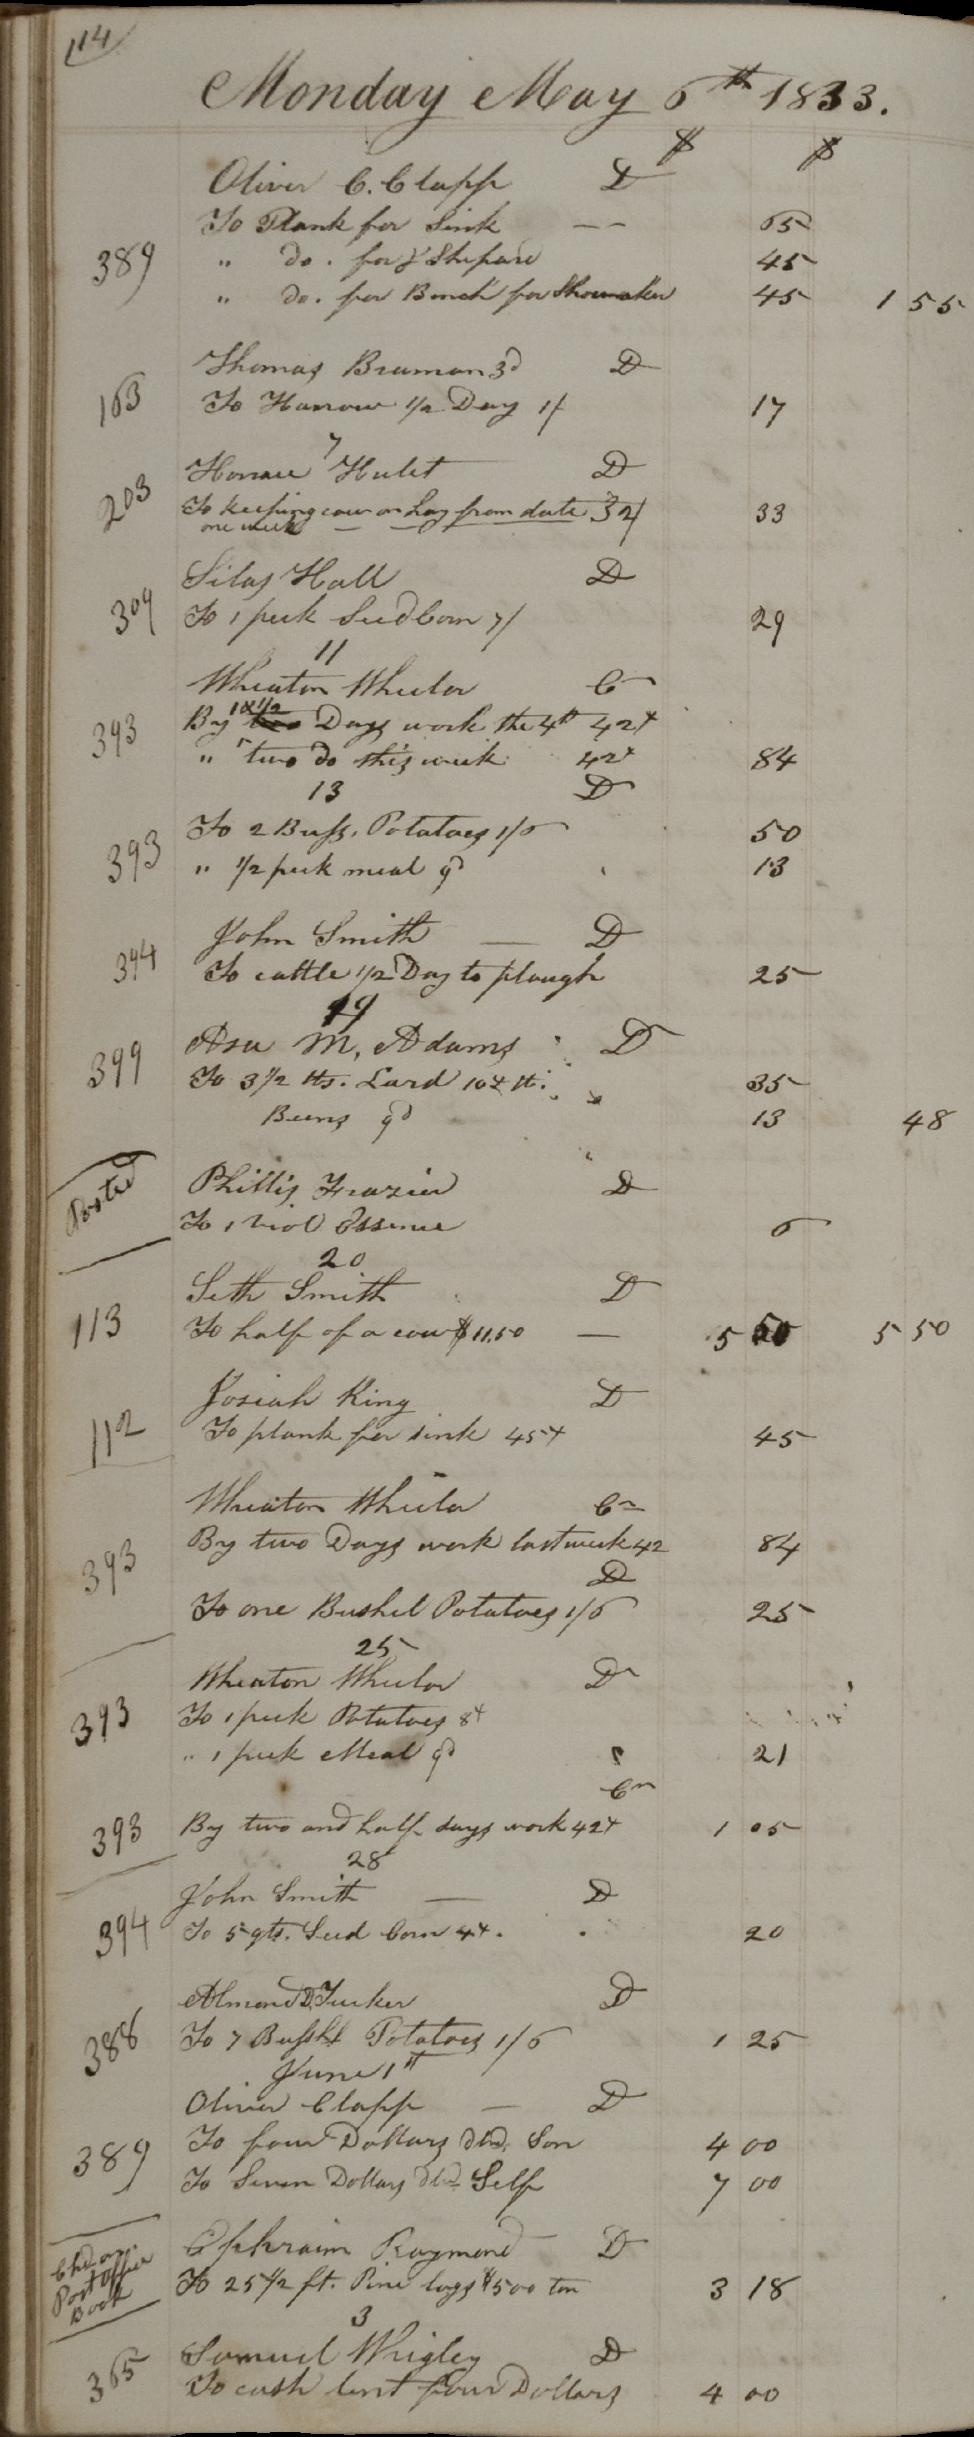 114
Monday May 6th 1833.
$ $
Oliver C. Clapp D
To Plank for Sink -- 65
389 " do. for Shepard 45
" do. for Bench for Shoemaker 45 1 55
Thomas Braman 3d D
163 To Harrow 1/2 Day 1/ 17
7
203 Horace Hulet D
To keeping cow on hay from date 2/ 33
one week
Silas Hall D
309 To 1 peck Seed Corn 7/ 29
11
Wheaton Wheelor C
393 By two Days work the 4th 42
" two do this week 42 84
13 D
393 To 2 Bush. Potatoes 1/6 50
" 1/2 peck meal 9d 13
John Smith — D
394 To cattle 1/2 Day to plough 25
19
399 Asa M. Adams D
To 3 1/2 lbs. Lard 10 lb. 35
Beens 9d 13 48
Posted
Phillis Frazier D
To 1 viol Essence 6
20
Seth Smith D
113 To half of a cow $11.50 — 5 50 5 50
Josiah King D
112 To plank for sink 45 45
Wheaton Wheelor Cr
393 By two Days work last week 42 84
D
To one Bushel Potatoes 1/6 25
25
Wheaton Wheelor Dr
393 To 1 peck Potatoes 8
" 1 peck Meal 9d 21
Cr
393 By two and half days work 42 1 05
28
John Smith — D
394 To 5 qts. Seed Corn 4. 20
Almond D. Tucker D
388 To 7 Bushl Potatoes 1/6 1 25
June 1st
Oliver Clapp — D
389 To four Dollars dld. Son 4 00
To Seven Dollars dld Self 7 00
Chd on
Post Office
Book
Ephraim Raymond D
To 25 1/2 ft. Pine logs $5 00 ton 3 18
3
365 Samuel Whigley D
To cash lent four Dollars 4 00